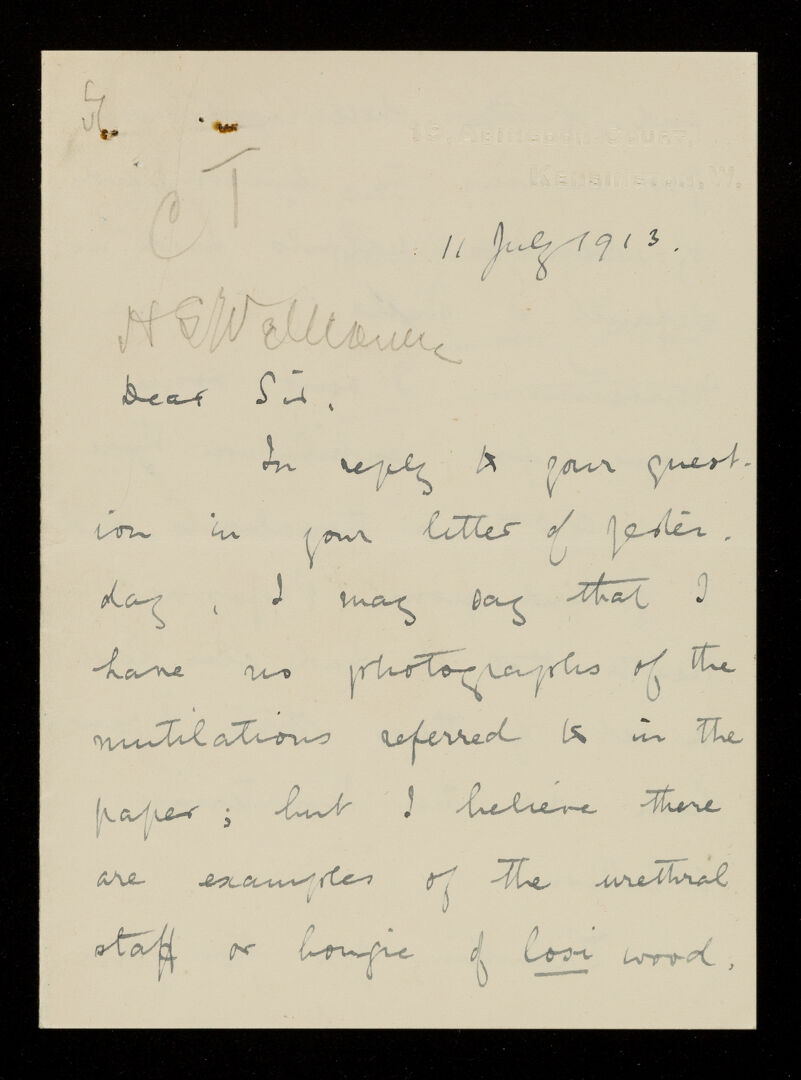 19, Abingdon Court,
Kensington, W.
C T
11 July 1913.
H S Wellcome
Dear Sir,
In reply to your quest-
ion in your letter of yester-
day, I may say that I
have no photographs of the
mutilations referred to in the
paper; but I believe there
are examples of the urethral
staff or bougie of losi wood,